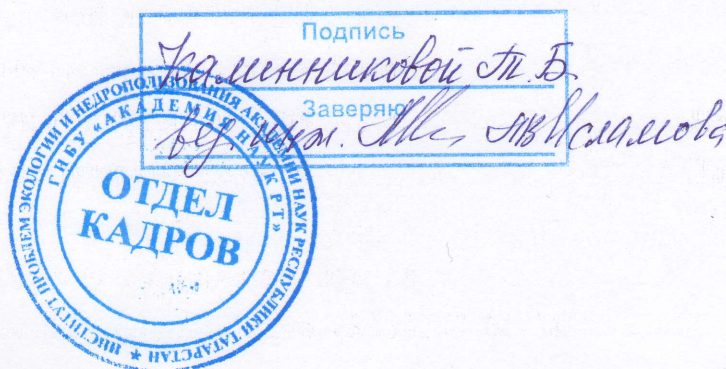 Подпись
Калинниковой Т.Б.
Заверяю
вед. инж. Исламова
ИНСТИТУТ ПРОБЛЕМ ЭКОЛОГИИ И НЕДРОПОЛЬЗОВАНИЯ АКАДЕМИИ НАУК РЕСПУБЛИКИ ТАТАРСТАН ★
ГНБУ «АКАДЕМИЯ НАУК РТ»
ОТДЕЛ
КАДРОВ